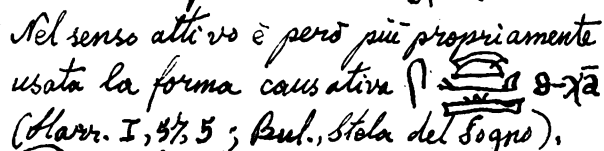 Nel senso attivo è però più propriamente
usata la forma causativa
(Harr. I, 57, 5 ; Bul., Stela del Sogno).